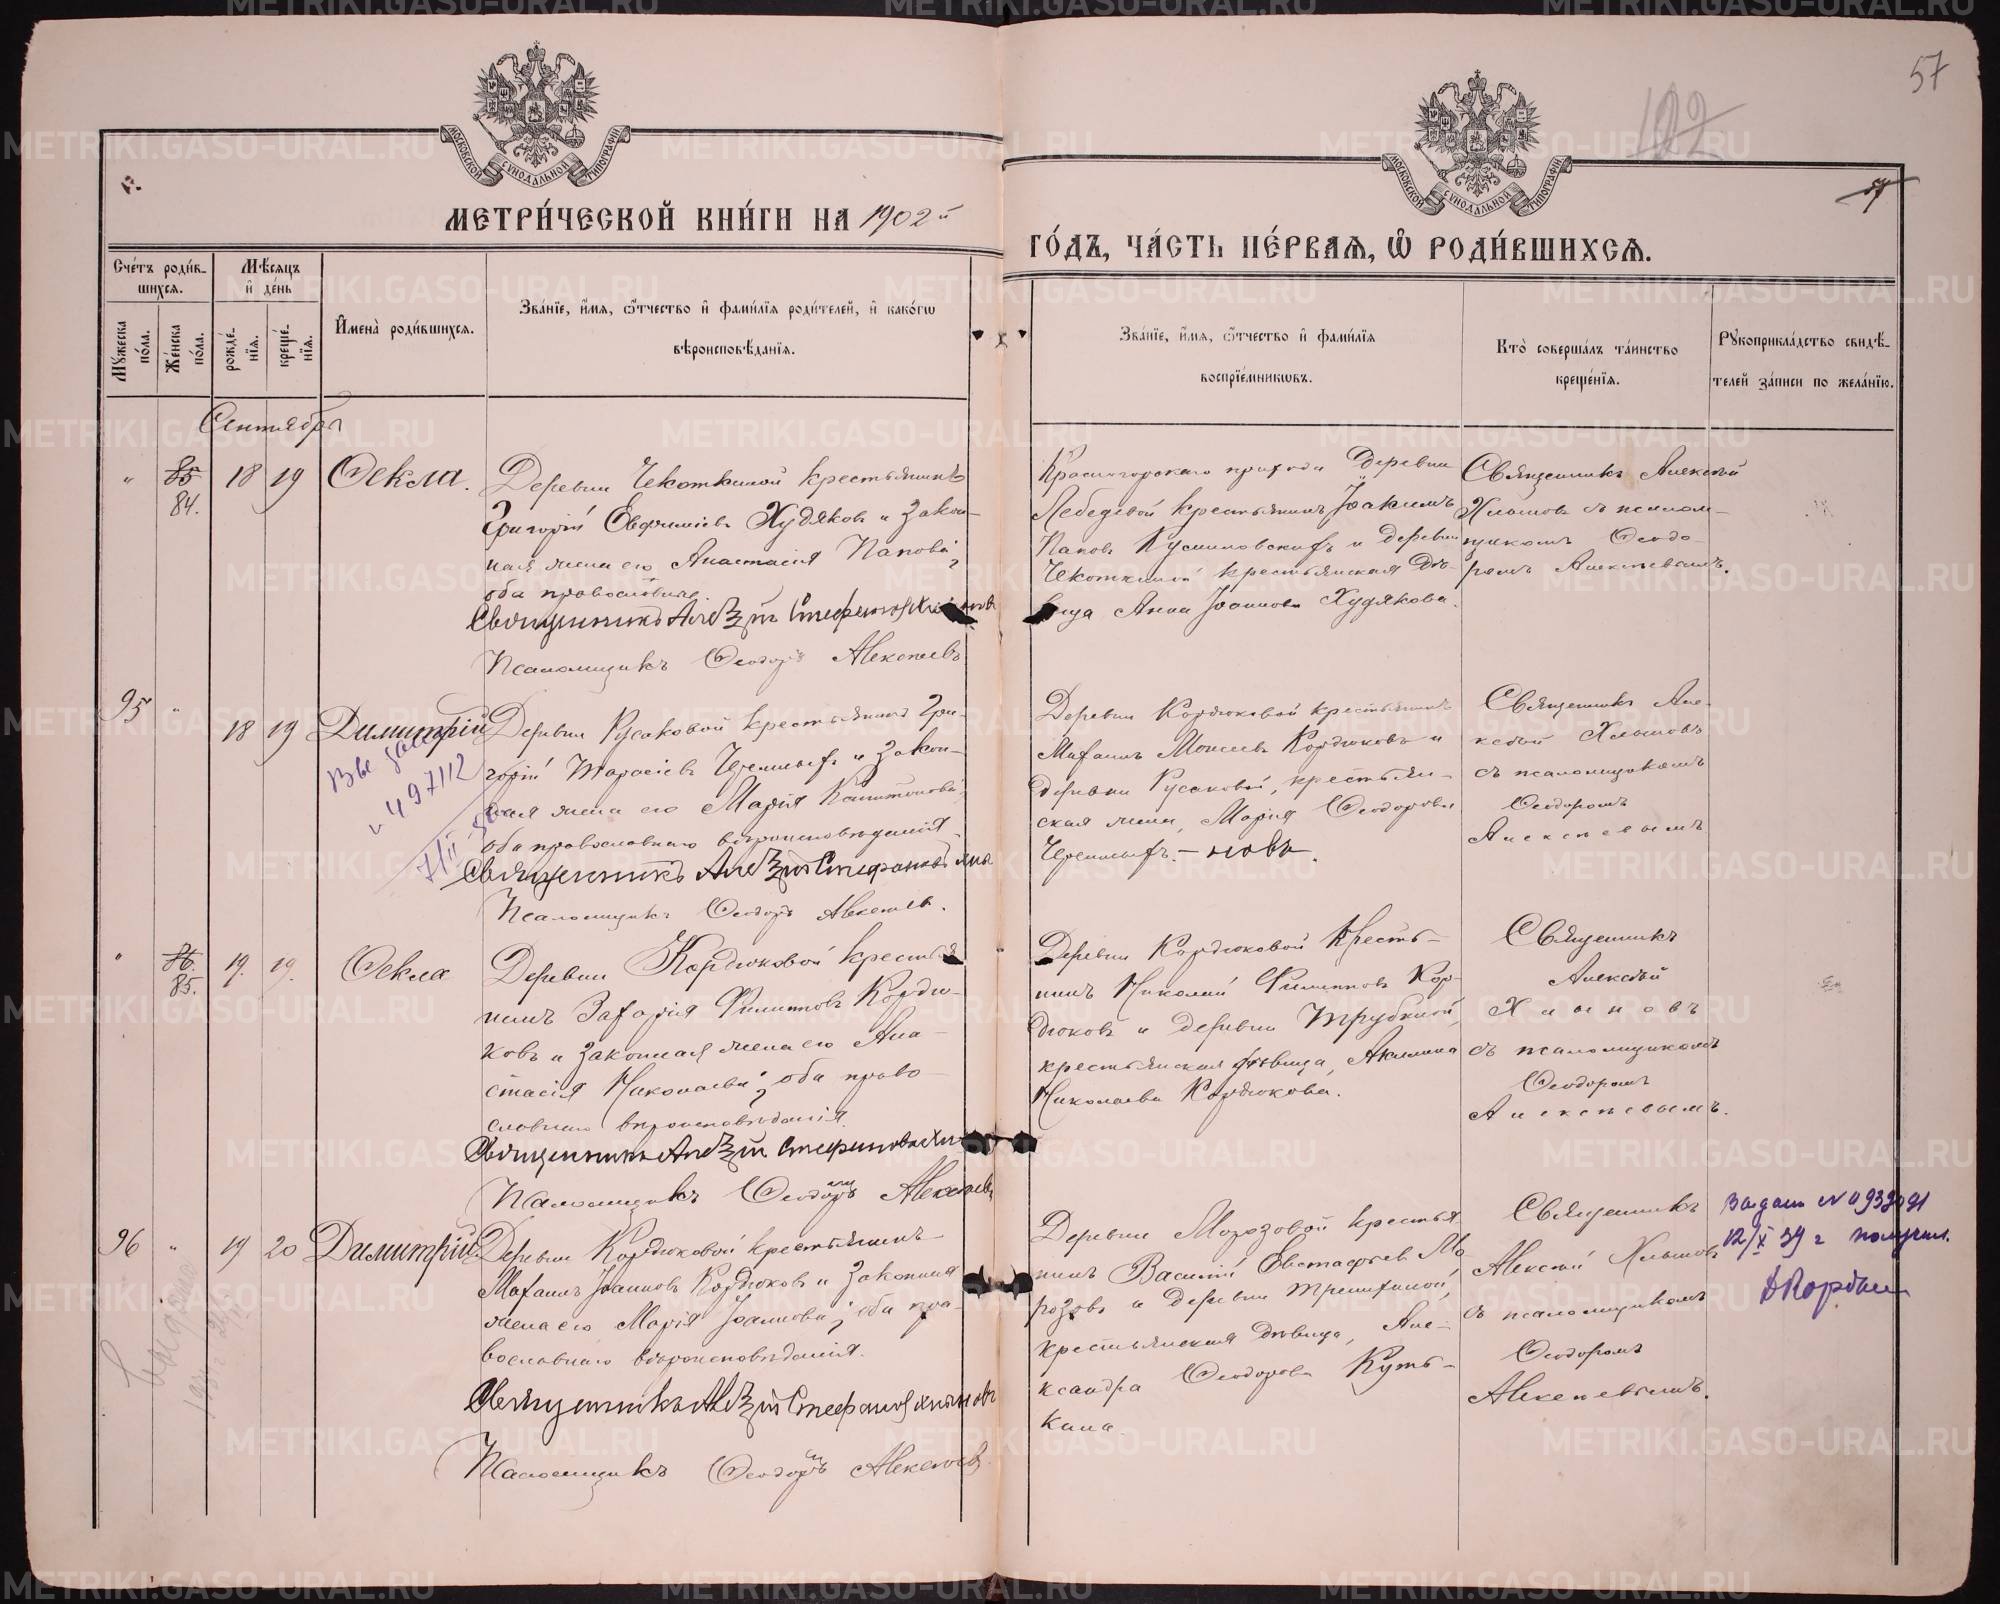 57
122
57
МОСКОВСКОЙ СѴНОДАЛЬНОЙ ТИПОГРАФІИ
МОСКОВСКОЙ СѴНОДАЛЬНОЙ ТИПОГРАФІИ
МЕТРИ́ЧЕСКОЙ КНИ́ГИ НА 1902й
ГО́ДЪ, ЧА́СТЬ ПЕ́РВАѦ, Ѡ҆ РОДИ́ВШИХСѦ.
Сче́тъ роди́в-
шихсѧ.
Мꙋ́жеска по́ла.
Же́нска по́ла.
Мѣ́сѧцъ
и҆ де́нь
рожде́-
нїѧ.
креще́-
нїѧ.
И҆мена̀ роди́вшихсѧ.
Зва́нїе, и҆́мѧ, ѻ҆́тчество и҆ фами́лїѧ роди́телей, и҆ како́гѡ
вѣроисповѣ́данїѧ.
Зва́нїе, и҆́мѧ, ѻ҆́тчество и҆ фами́лїѧ
воспрїе́мникѡвъ.
Кто̀ соверша́лъ та́инство
креще́нїѧ.
Рꙋкоприкла́дство свидѣ́-
телей за́писи по жела́нїю.
Сентябрь
"
85
84.
18
19
Ѳекла.
Деревни Чекоткиной крестьянинъ
Григорій Евѳиміевъ Худяковъ и закон-
ная жена его Анастасія Папова,
оба православные.
Священникъ Алексій Стефановъ Хлыновъ
Псаломщикъ Ѳеодоръ Алексѣевъ
Красногорскаго прихода деревни
Лебедевой крестьянинъ Іоакимъ
Паковъ и деревни
Чекоткиной крестьянская дѣ-
вица Анна Іоаннова Худякова.
Священникъ Алексѣй
Хлыновъ съ псалом-
щикомъ Ѳеодо-
ромъ Алексѣевымъ.
95
"
18
19
Димитрій
497112
Деревни Русаковой крестьянинъ Гри-
горій Тарасіевъ и закон-
ная жена его Марія Капитонова,
оба православнаго вѣроисповѣданія.
Священникъ Алексій Стефановъ
Псаломщикъ Ѳеодоръ Алексѣевъ.
Деревни Кордюковой крестьянинъ
Михаилъ Моисеевъ Кордюковъ и
деревни Русаковой, крестьян-
ская жена, Марія Ѳеодорова
Священникъ Але-
ксѣй Хлыновъ
съ псаломщикомъ
Ѳеодоромъ
Алексѣевымъ
"
86.
85.
19.
19.
Ѳекла
Деревни Кордюковой крестья-
нинъ Захарія Филипповъ Кордю-
ковъ и законная жена его Ана-
стасія Николаева, оба право-
славнаго вѣроисповѣданія.
Священникъ Алексій Стефановъ
Псаломщикъ Ѳеодоръ Алексѣевъ
Деревни Кордюковой кресть-
янинъ Николай Филипповъ Кор-
дюковъ и деревни Трубкиной,
крестьянская дѣвица, Акилина
Николаева Кордюкова.
Священникъ
Алексѣй
Хлыновъ
съ псаломщикомъ
Ѳеодоромъ
Алексѣевымъ.
96
"
19
20
Димитрій
Деревни Кордюковой крестьянинъ
Михаилъ Іоанновъ Кордюковъ и законная
жена его Марія Іоаннова, оба пра-
вославнаго вѣроисповѣданія.
Священникъ Алексій Стефановъ Хлыновъ
Псаломщикъ Ѳеодоръ Алексѣевъ
Деревни Морозовой крестья-
нинъ Василій Евстафьевъ Мо-
розовъ и деревни
крестьянская дѣвица, Але-
ксандра Ѳеодорова Куть-
кина.
Священникъ
Алексѣй Хлыновъ
съ псаломщикомъ
Ѳеодоромъ
Алексѣевымъ.
Выдано
12/X 39 г получил.
METRIKI.GASO-URAL.RU